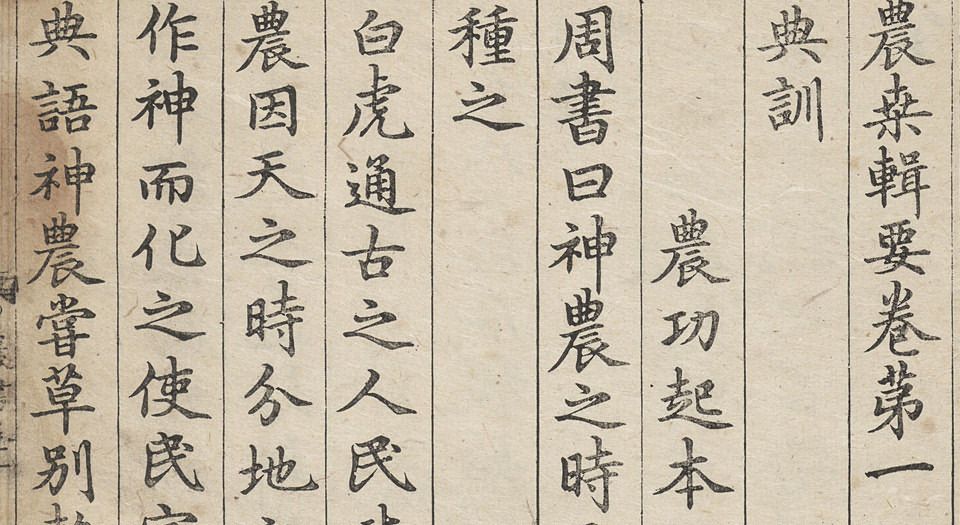 農桒輯要卷苐一
典訓
農功起本
周書曰神農之時
種之
白虎通古之人民
農因天之時分地
作神而化之使民
典語神農嘗草别